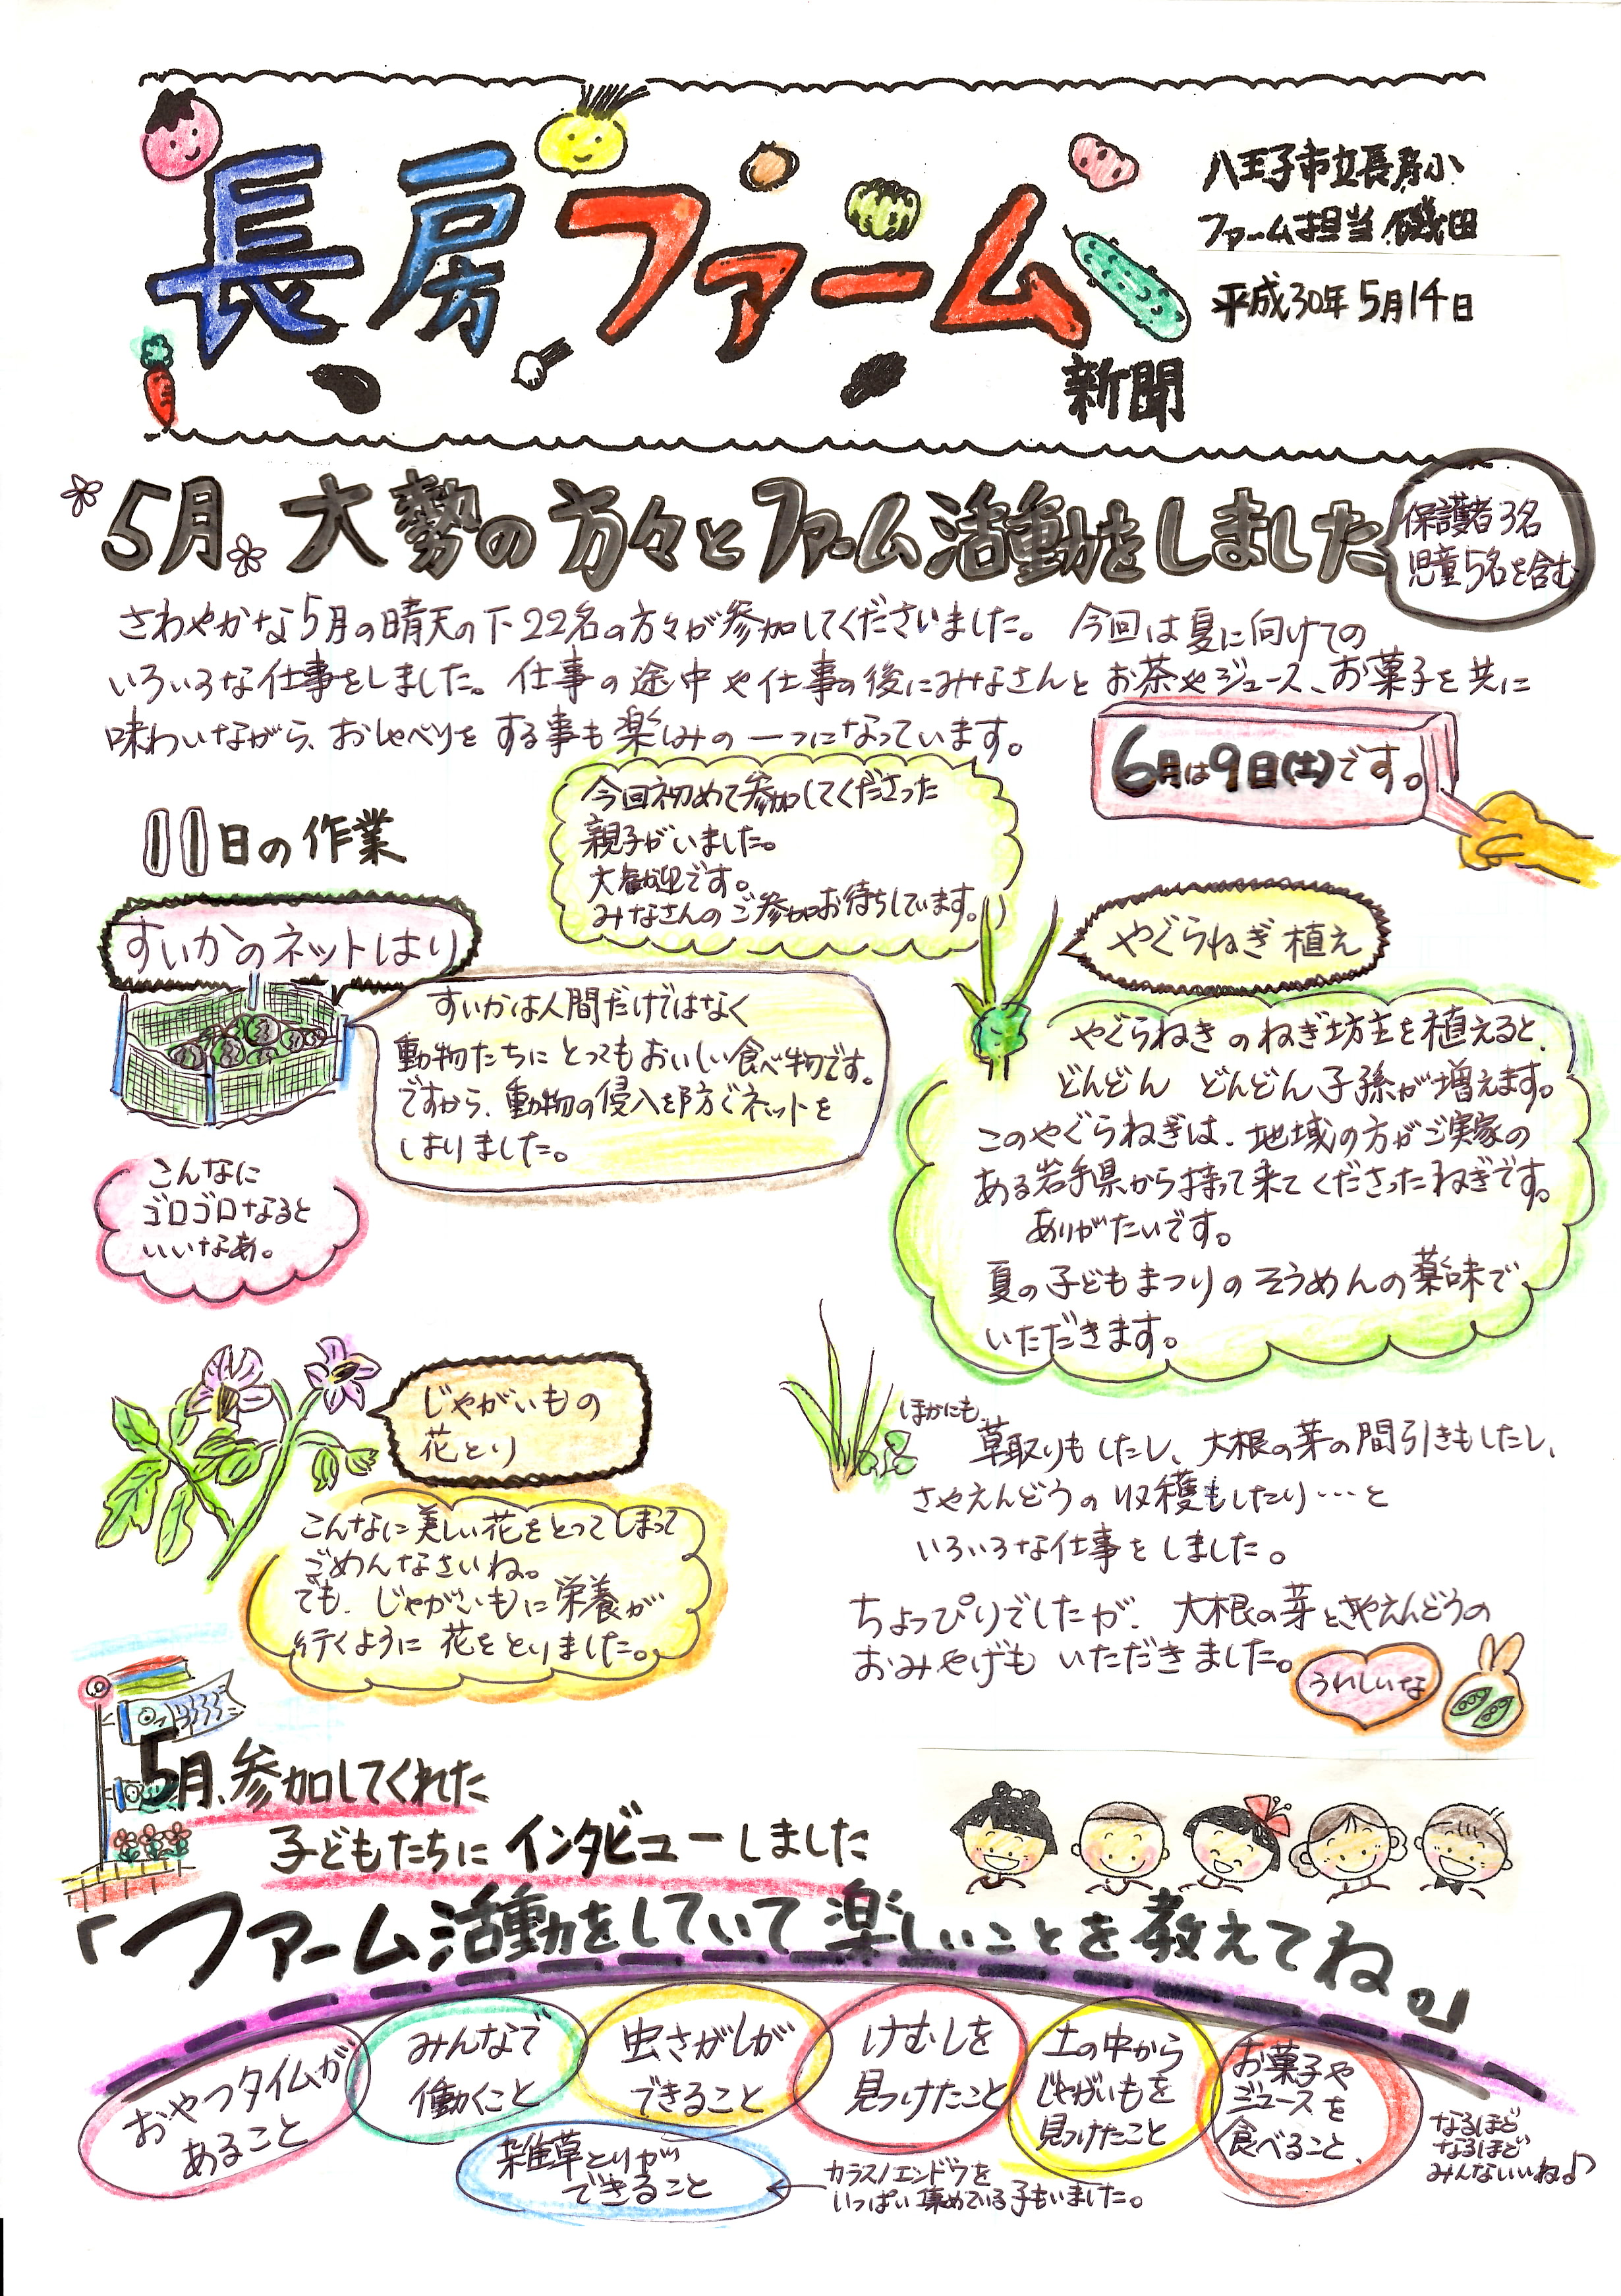 長房ファーム
新聞
八王子市立長房小
ファーム担当 磯田
平成30年5月14日
5月 大勢の方々とファーム活動をしました
保護者3名
児童5名を含む
さわやかな5月の晴天の下22名の方々が参加してくださいました。今回は夏に向けての
いろいろな仕事をしました。仕事の途中や仕事の後にみなさんとお茶やジュース、お菓子を共に
味わいながら、おしゃべりをする事も楽しみの一つになっています。
6月は9日(土)です。
今回初めて参加してくださった
親子がいました。
大歓迎です。
みなさんのご参加お待ちしています。
11日の作業
すいかのネットはり
すいかは人間だけではなく
動物たちにとってもおいしい食べ物です。
ですから、動物の侵入を防ぐネットを
はりました。
こんなに
ゴロゴロなると
いいなあ。
やぐらねぎ植え
やぐらねぎのねぎ坊主を植えると、
どんどん どんどん子孫が増えます。
このやぐらねぎは、地域の方がご実家の
ある岩手県から持って来てくださったねぎです。
ありがたいです。
夏の子どもまつりのそうめんの薬味で
いただきます。
じゃがいもの
花とり
こんなに美しい花をとってしまって
ごめんなさいね。
でも、じゃがいもに栄養が
行くように花をとりました。
ほかにも
草取りもしたし、大根の芽の間引きもしたし、
さやえんどうの収穫もしたり…と
いろいろな仕事をしました。
ちょっぴりでしたが、大根の芽とさやえんどうの
おみやげもいただきました。
うれしいな
5月、参加してくれた
子どもたちにインタビューしました
「ファーム活動をしていて楽しいことを教えてね。」
おやつタイムが
あること
みんなで
働くこと
虫さがしが
できること
けむしを
見つけたこと
土の中から
じゃがいもを
見つけたこと
お菓子や
ジュースを
食べること、
雑草とりが
できること
カラスノエンドウを
いっぱい集めている子もいました。
なるほど
なるほど
みんないいね♪